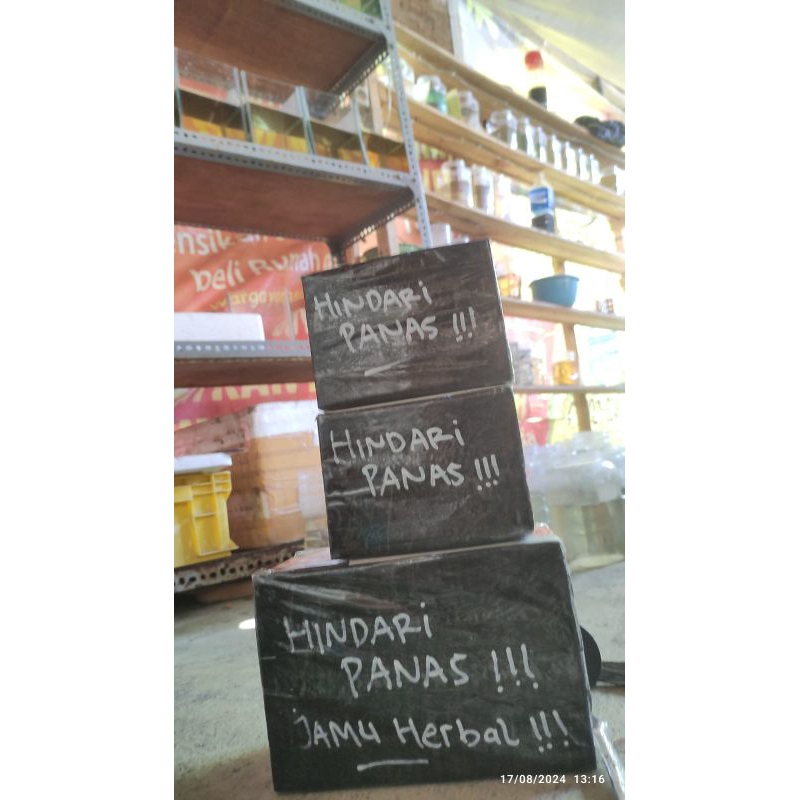 Beli Rumah
HINDARI
PANAS !!!
HINDARI
PANAS !!!
HINDARI
PANAS !!!
JAMU Herbal !!!
17/08/2024 13:16